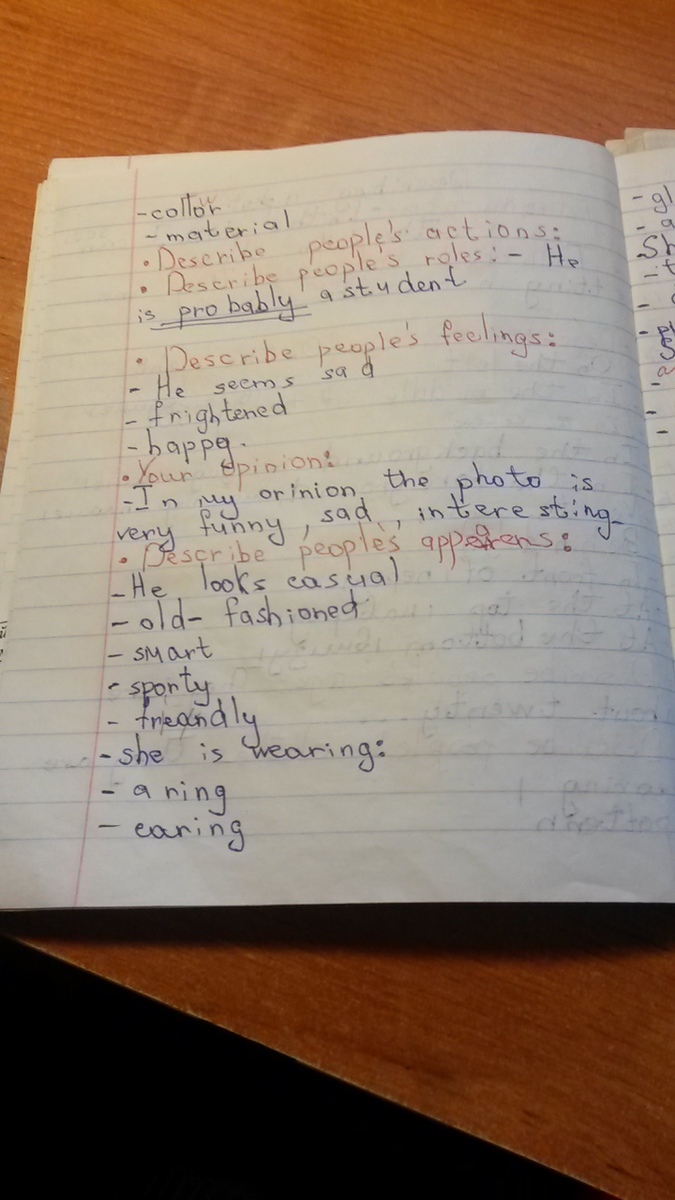 -collor
- material
• Describe people's actions:
• Describe people's roles: - He
is probably a student
• Describe people's feelings:
- He seems sad
- frightened
- happy.
• Your opinion:
-In my orinion the photo is
very funny, sad, interesting
• Describe people's apperens:
- He looks casual
- old- fashioned
- smart
- sporty
- freandly
- she is wearing:
- a ring
- earing